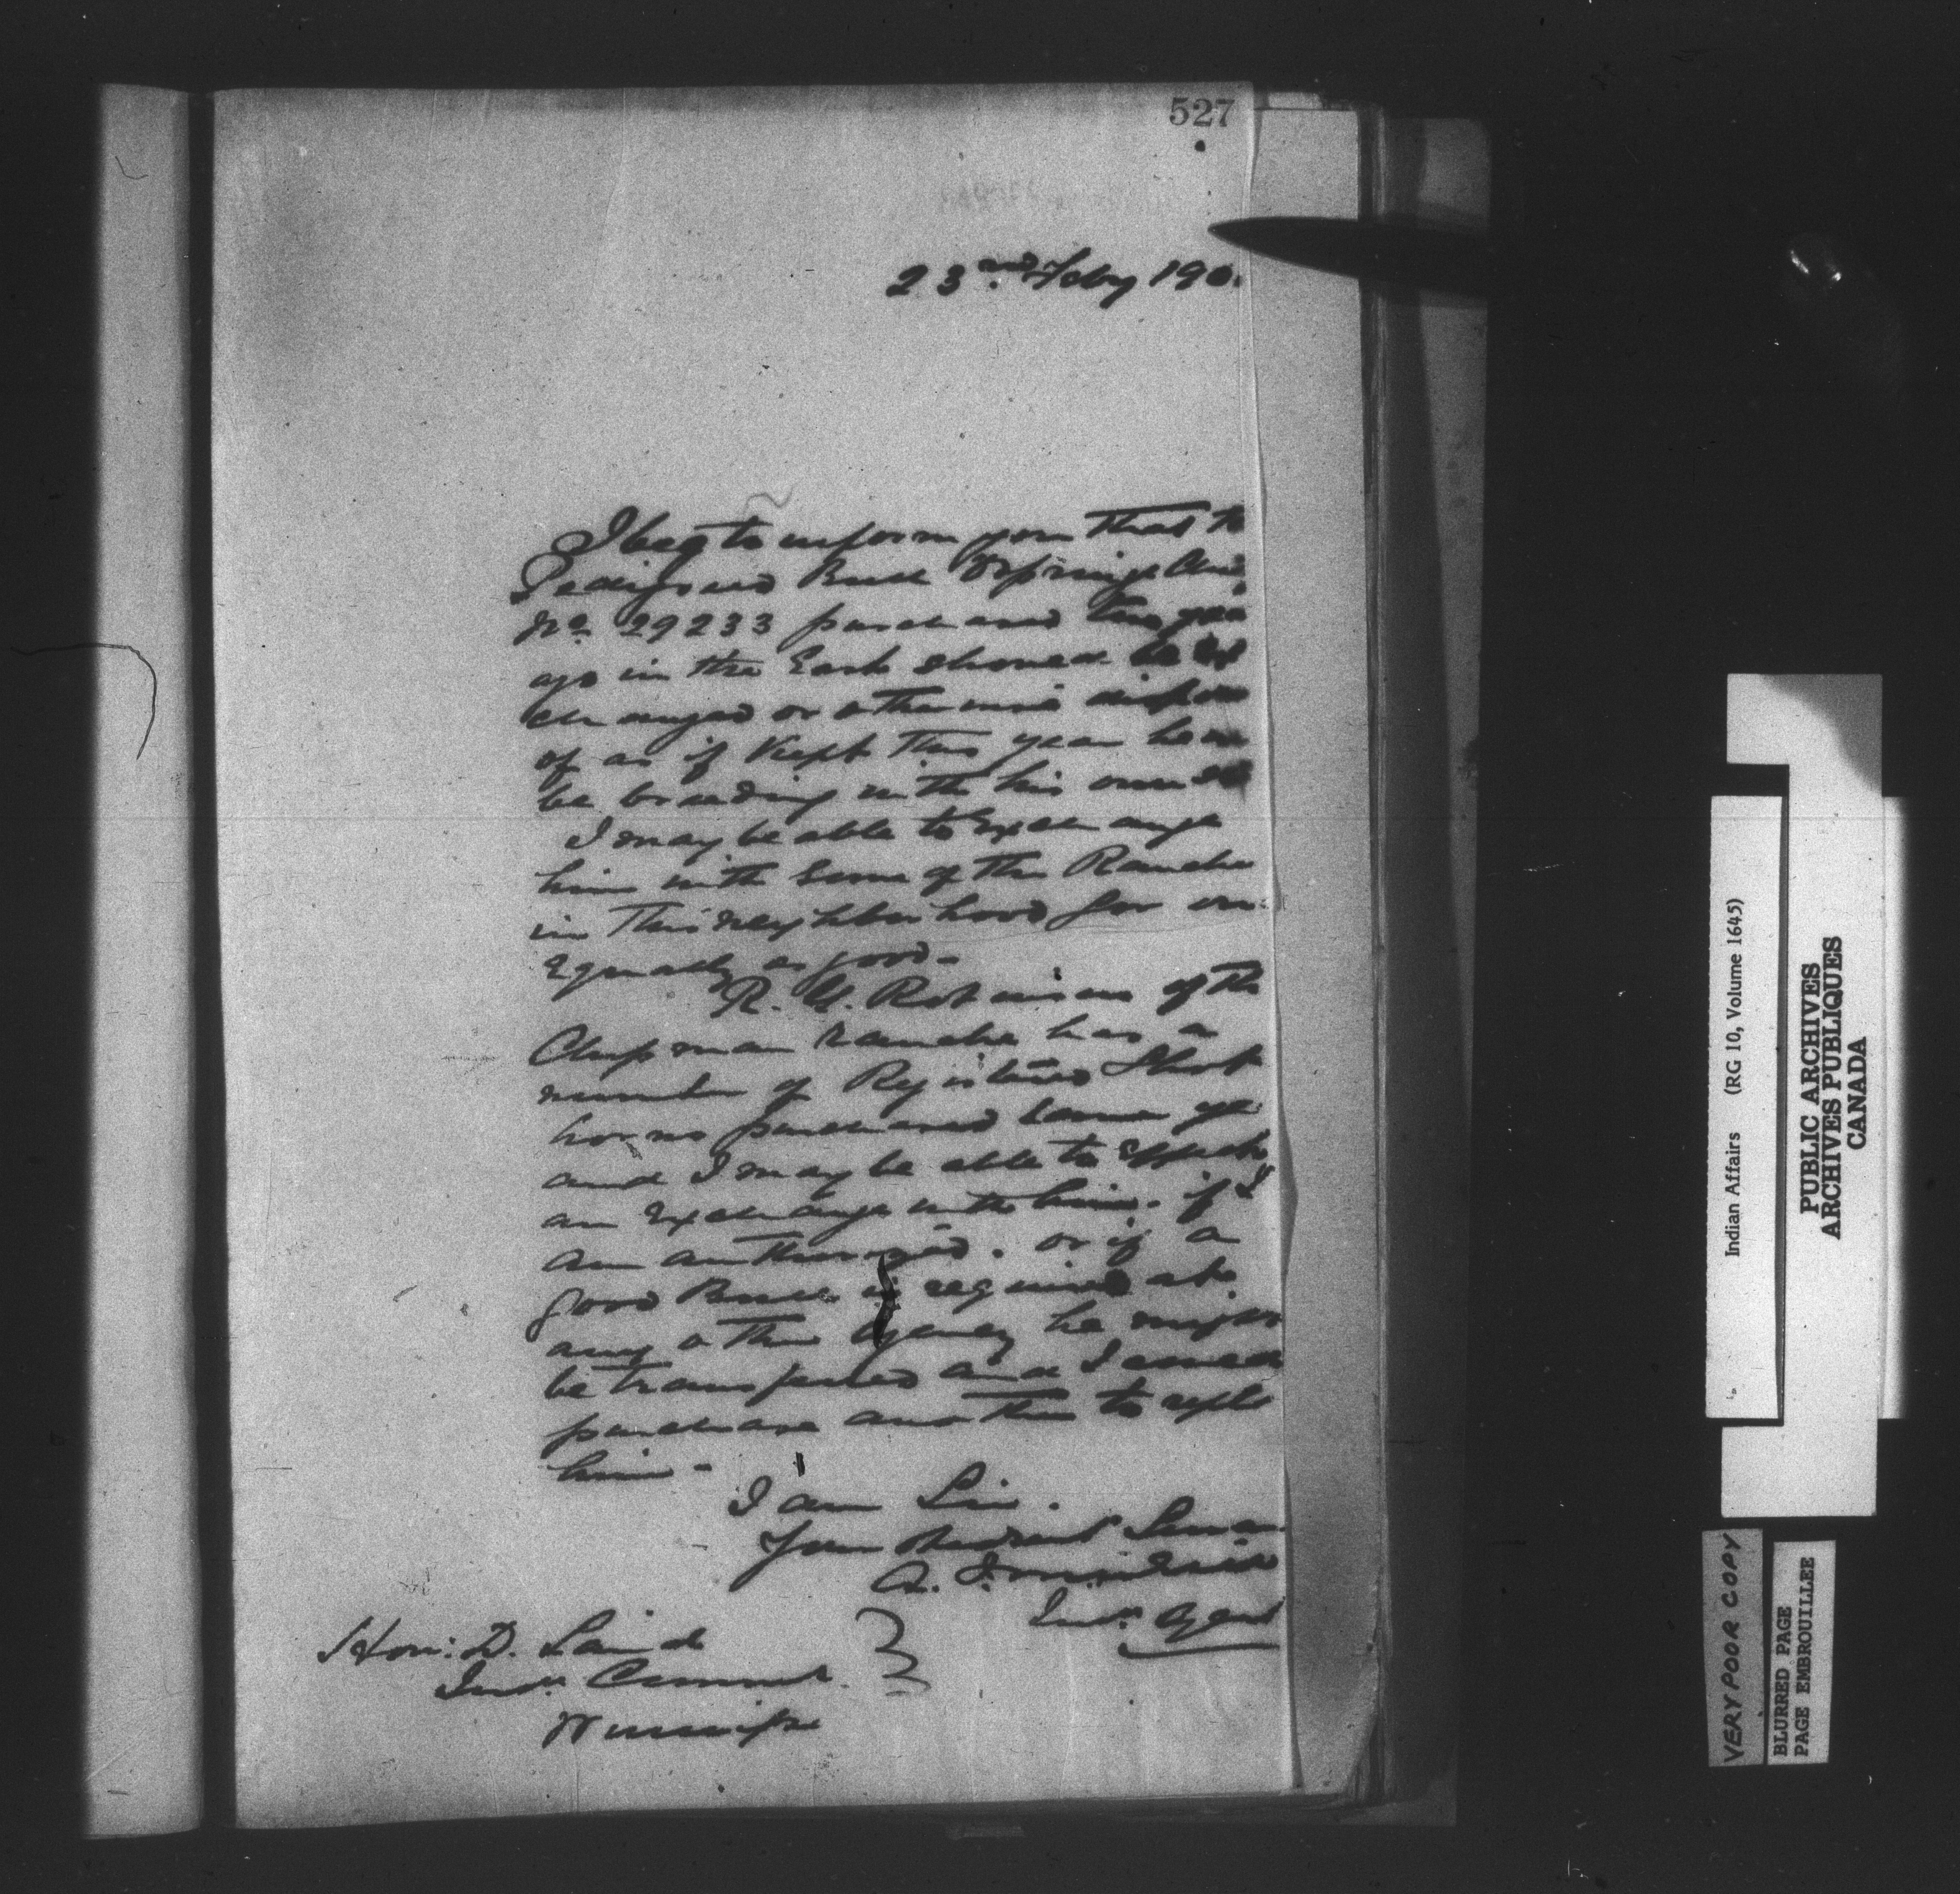 527
23rd Feby 190
I beg to inform you that the
Pedigreed Bull
No 29233 purchased two yea
ago in the East should be Ex
changed or otherwise dispose
of as if Kept this year he
be breeding with his own
I may be able to Exchange
him with some of the Ranche
in this neighborhood for one
Equally as good -
R. G. Robinson of the
Chipman Ranche has a
number of Registered Short
horns purchased some ye
and I may be able to Effect
an Exchange with him. if I
am authorized. or if a
good Bull is required at
any other Agency he might
be transferred and I could
purchase another to repla
him -
I am Sir.
Your Obedient Servan
A. J. McNeill
Indn. Agent
Hon: D. Laird
Indn. Commr.
Winnipeg
Indian Affairs (RG 10, Volume 1645)
PUBLIC ARCHIVES
ARCHIVES PUBLIQUES
CANADA
VERY POOR COPY
BLURRED PAGE
PAGE EMBROUILLEE